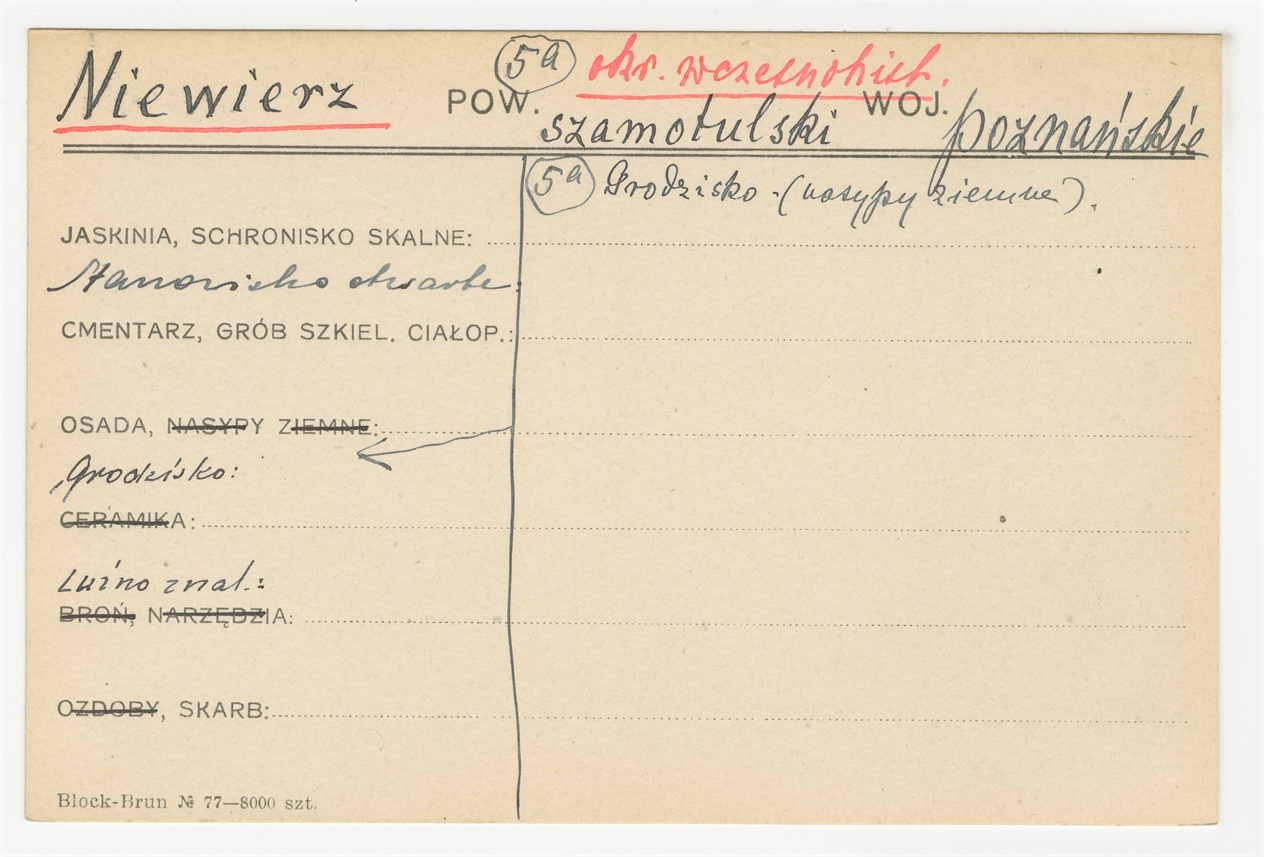 Niewierz 5a okr. wczesnohist.
POW. szamotulski WOJ. poznańskie
5a Grodzisko - (nasypy ziemne).
JASKINIA, SCHRONISKO SKALNE:
Stanowisko otwarte:
CMENTARZ, GRÓB SZKIEL. CIAŁOP.:
OSADA, NASYPY ZIEMNE:
Grodzisko:
CERAMIKA:
Luźno znal.:
BROŃ, NARZĘDZIA:
OZDOBY, SKARB:
Block-Brun № 77—8000 szt.